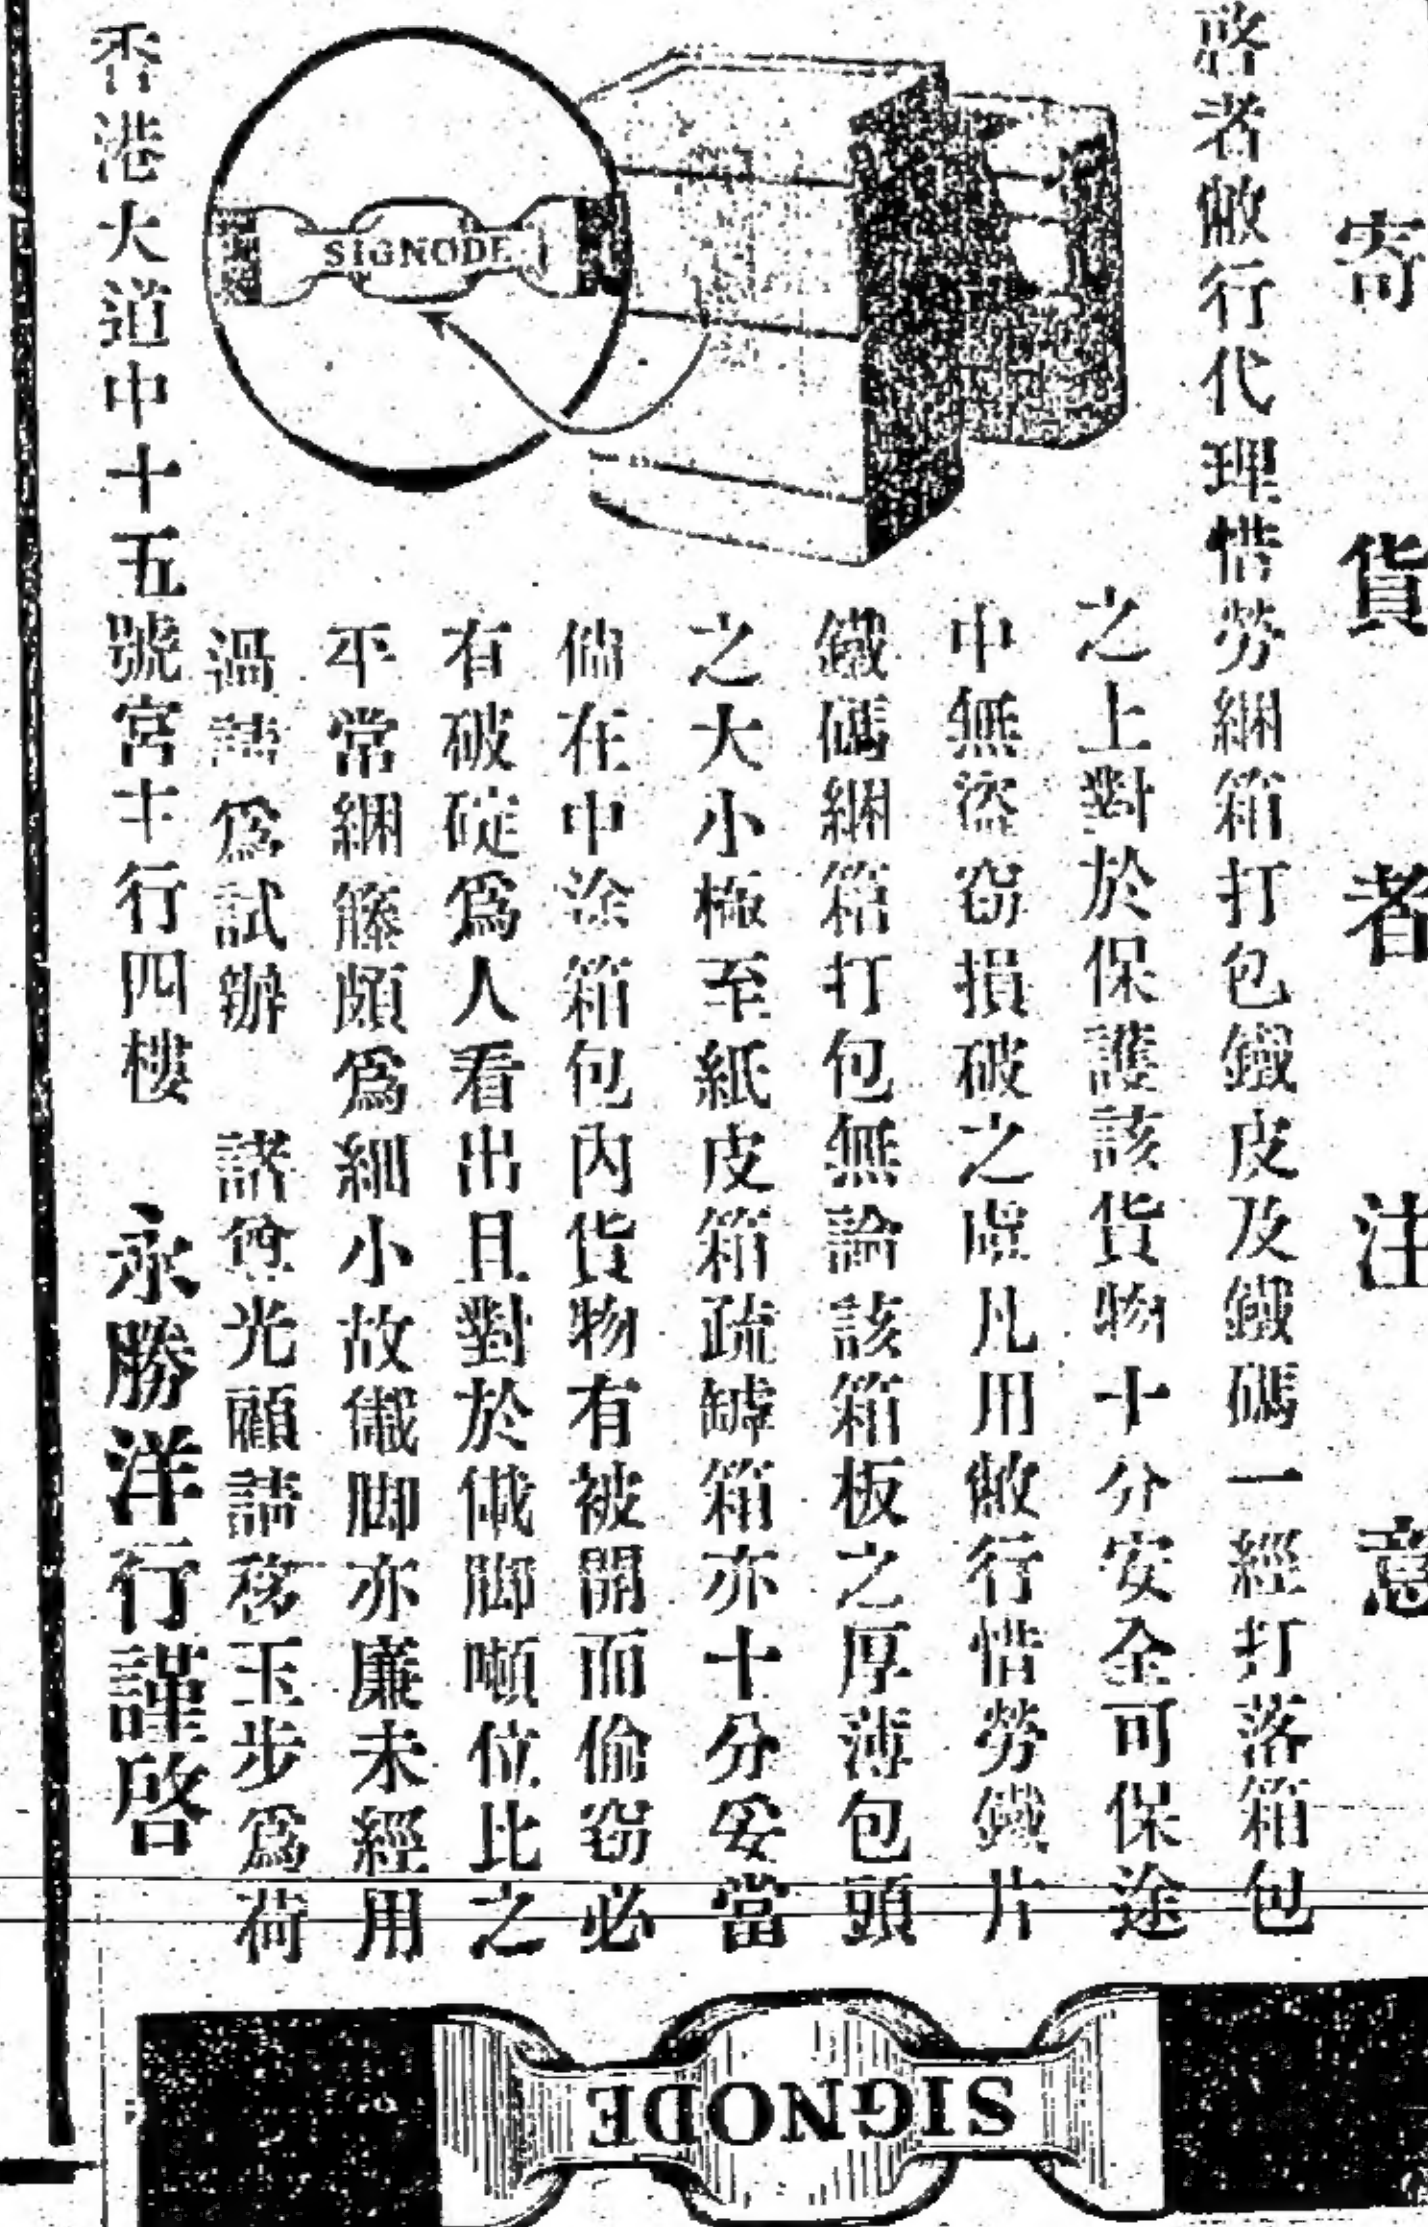 寄貨者注意
啓者敝行代理惜勞綑箱打包鐵皮及鐵碼一經打落箱包
之上對於保護該貨物十分安全可保途
中無盜窃損破之虞凡用敝行惜勞鐵片
鐵碼綑箱打包無論該箱板之厚薄包頭
之大小極至紙皮箱疏罅箱亦十分妥當
倘在中途箱包內貨物有被開而偷窃必
有破碇爲人看出且對於儎脚噸位比之
平常綑籐頗爲細小故儎脚亦廉未經用
過請爲試辦 諸君光顧請移玉步爲荷
香港大道中十五號宮主行四樓 永勝洋行謹啓
SIGNODE
SIGNODE